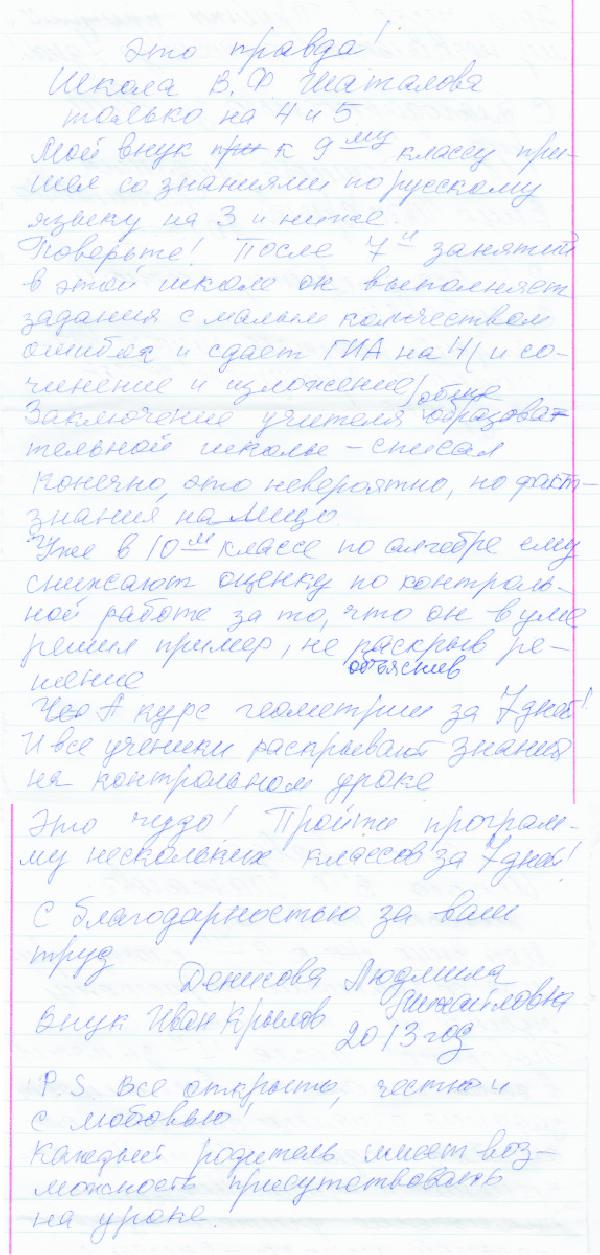 Это правда!
Школа В.Ф Шаталова
только на 4 и 5
Мой внук при к 9му классу при-
шел со знаниями по русскому
языку на 3 и ниже.
Поверьте! После 7и занятий
в этой школе он выполняет
задания с малым количеством
ошибок и сдает ГИА на 4 (и со-
чинение и изложение)
Заключение учителя общеобразова-
тельной школы – списал
Конечно, это невероятно, но факт-
знания на лицо.
Уже в 10м классе по алгебре ему
снижают оценку по контроль-
ной работе за то, что он в уме
решил пример, не раскрыв ре-
объяснив
шение
А курс геометрии за 7 дней!
И все ученики раскрывают знания
на контрольном уроке
Это чудо! Пройти програм-
му нескольких классов за 7 дней!
С благодарностью за ваш
труд
Денисова Людмила
Михайловна
Внук Иван Крылов
2013 год
P.S. Все открыто, честно и
с любовью!
Каждый родитель имеет воз-
можность присутствовать
на уроке.